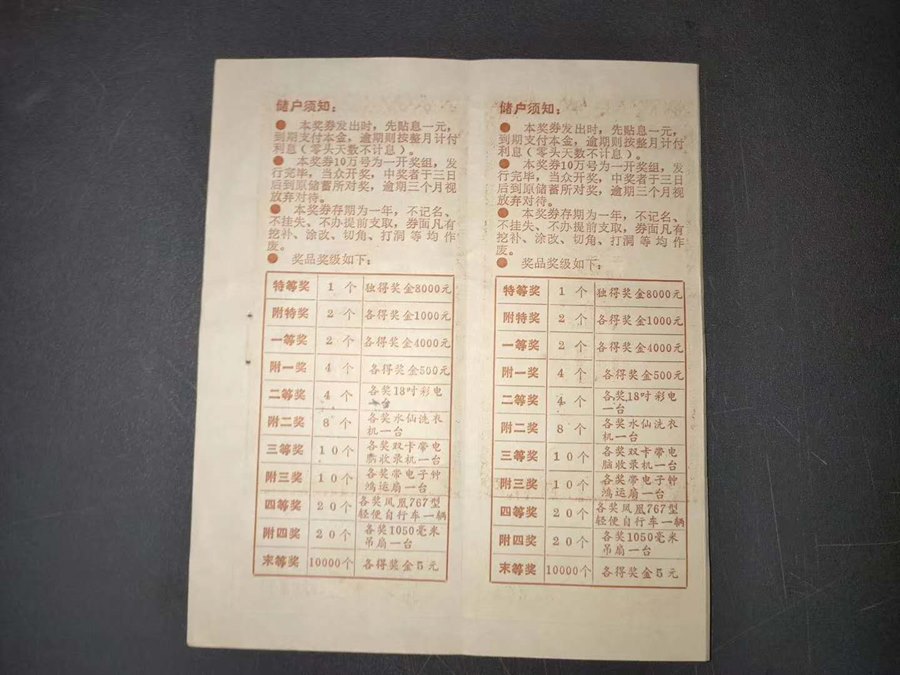 储户须知：
● 本奖券发出时，先贴息一元，
到期支付本金，逾期则按整月计付
利息（零头天数不计息）。
● 本奖券10万号为一开奖组，发
行完毕，当众开奖，中奖者于三日
后到原储蓄所对奖，逾期三个月视
放弃对待。
● 本奖券存期为一年，不记名、
不挂失、不办提前支取，券面凡有
挖补、涂改、切角、打洞等均作
废。
● 奖品奖级如下：
特等奖 1个 独得奖金8000元
附特奖 2个 各得奖金1000元
一等奖 2个 各得奖金4000元
附一奖 4个 各得奖金500元
二等奖 4个 各奖18吋彩电
一台
附二奖 8个 各奖水仙洗衣
机一台
三等奖 10个 各奖双卡带电
脑收录机一台
附三奖 10个 各奖带电子钟
鸿运扇一台
四等奖 20个 各奖凤凰767型
轻便自行车一辆
附四奖 20个 各奖1050毫米
吊扇一台
末等奖 10000个 各得奖金5元
储户须知：
● 本奖券发出时，先贴息一元，
到期支付本金，逾期则按整月计付
利息（零头天数不计息）。
● 本奖券10万号为一开奖组，发
行完毕，当众开奖，中奖者于三日
后到原储蓄所对奖，逾期三个月视
放弃对待。
● 本奖券存期为一年，不记名、
不挂失、不办提前支取，券面凡有
挖补、涂改、切角、打洞等均作
废。
● 奖品奖级如下：
特等奖 1个 独得奖金8000元
附特奖 2个 各得奖金1000元
一等奖 2个 各得奖金4000元
附一奖 4个 各得奖金500元
二等奖 4个 各奖18吋彩电
一台
附二奖 8个 各奖水仙洗衣
机一台
三等奖 10个 各奖双卡带电
脑收录机一台
附三奖 10个 各奖带电子钟
鸿运扇一台
四等奖 20个 各奖凤凰767型
轻便自行车一辆
附四奖 20个 各奖1050毫米
吊扇一台
末等奖 10000个 各得奖金5元